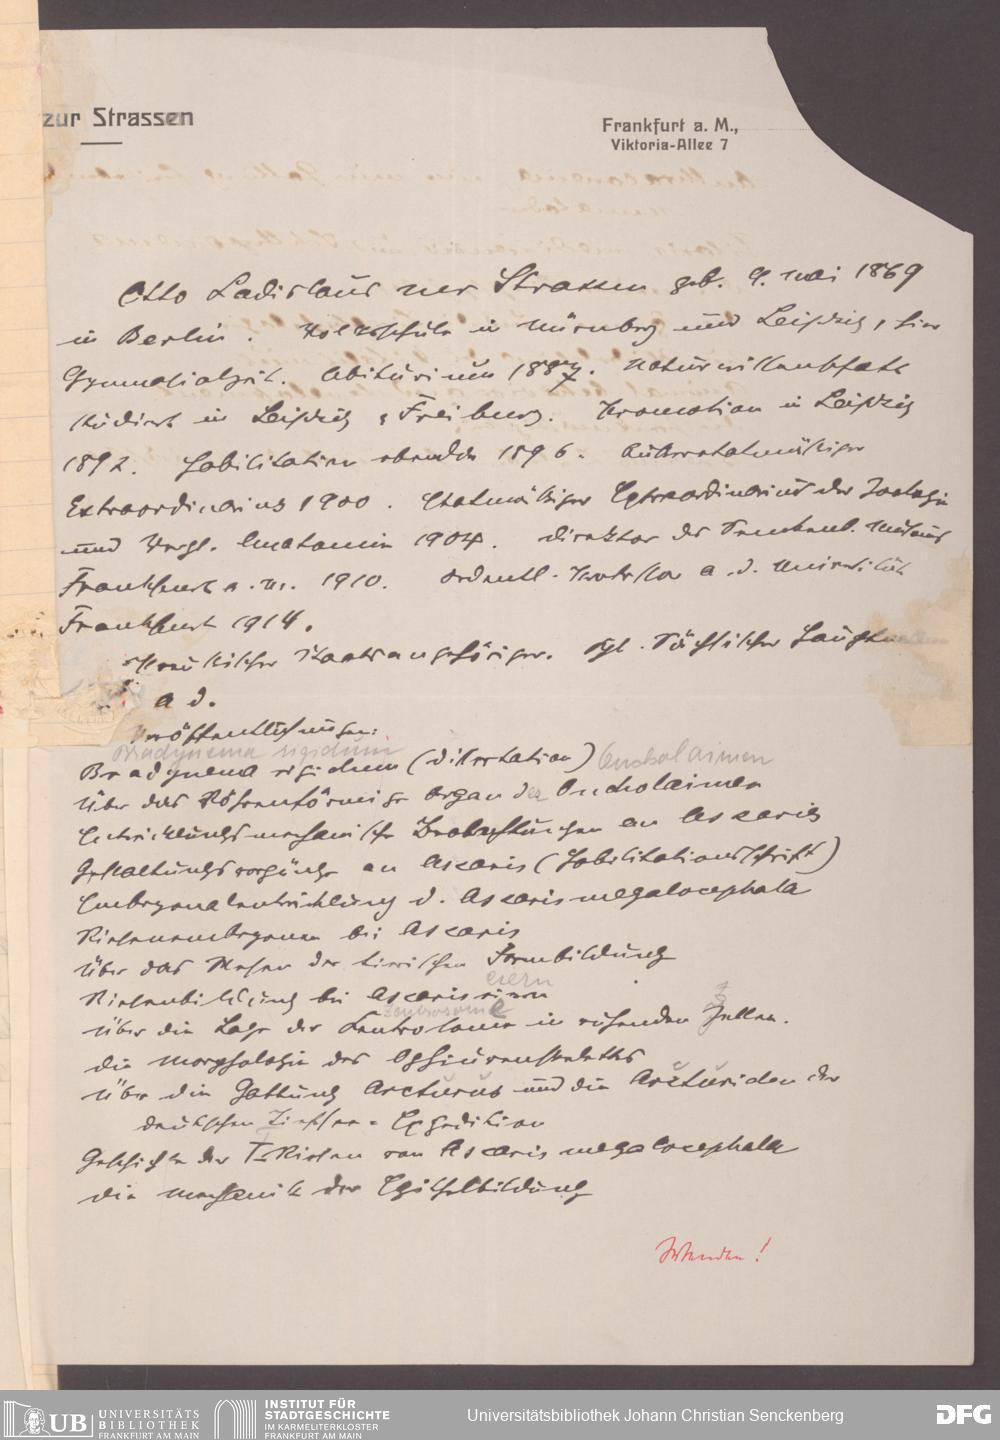 zur Strassen
Frankfurt a. M.,
Viktoria-Allee 7
Otto Ladislaus zur Strassen geb. 9. Mai 1869
in Berlin. Volksschule in Nürnberg und Leipzig, hier
Gymnasialzeit. Abiturium 1887. Naturwissenschaft
studiert in Leipzig & Freiburg. Promotion in Leipzig
1892. Habilitation ebenda 1896. Außeretatmäßiger
Extraordinarius 1900. Etatmäßiger Extraordinarius der Zoologie
und Vergl. Anatomie 1904. Direktor des Senckenb. Museums
Frankfurt a. M. 1910. Ordentl. Professor a. d. Universität
Frankfurt 1914.
Preussischer Staatsangehöriger. Kgl. Sächsischer Hauptmann
a d.
Veröffentlichungen:
Bradynema rigidum
Bradynema rigidum (Dissertation) Oncholaimen
Über das Röhrenförmige Organ der Oncholaimen
Entwicklungsmechanische Beobachtungen an Ascaris
Gestaltungsvorgänge an Ascaris (Habilitationsschrift)
Embryonalentwicklung d. Ascaris megalocephala
Riesenembryonen bei Ascaris
Über das Wesen der tierischen Formbildung
eiern
Riesenbildung bei Ascariseiern
Centrosome
Über die Lage der Centrosome in ruhenden Zellen.
Die Morphologie des Ophiurenskeletts
Über die Gattung Arcturus und die Arcturiden der
deutschen Tiefsee-Expedition
Geschichte der T-Riesen von Ascaris megalocephala
Die Mechanik der Epithelbildung
Wenden!
UB UNIVERSITÄTS
BIBLIOTHEK
FRANKFURT AM MAIN
INSTITUT FÜR
STADTGESCHICHTE
IM KARMELITERKLOSTER
FRANKFURT AM MAIN
Universitätsbibliothek Johann Christian Senckenberg
DFG